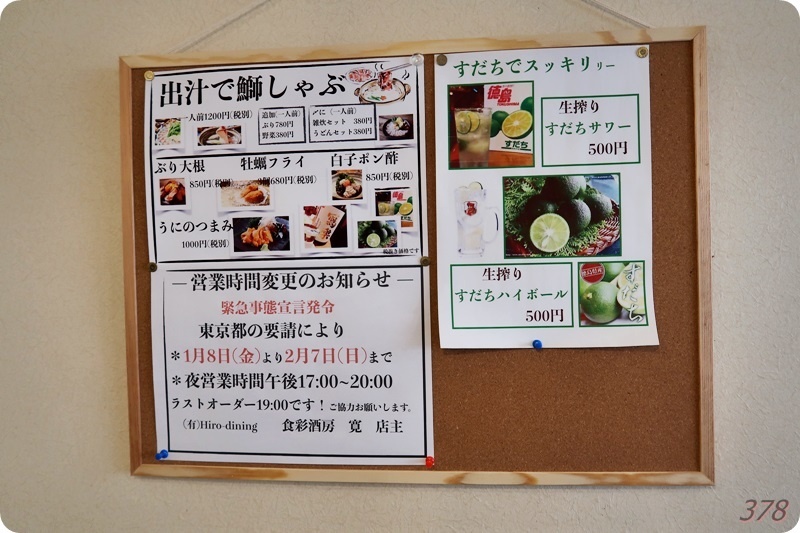 出汁で鰤しゃぶ
一人前1200円(税別)
追加(一人前)
ぶり780円
野菜380円
〆に（一人前）
雑炊セット 380円
うどんセット380円
ぶり大根
850円(税別)
牡蠣フライ
3個680円(税別)
白子ポン酢
850円(税別)
うにのつまみ
1000円(税別)
税抜き価格です
― 営業時間変更のお知らせ ―
緊急事態宣言発令
東京都の要請により
＊1月8日(金)より2月7日(日)まで
＊夜営業時間午後17:00~20:00
ラストオーダー19:00です！ご協力お願いします。
(有)Hiro-dining 食彩酒房 寛 店主
すだちでスッキリリー
徳島
すだち
生搾り
すだちサワー
500円
生搾り
すだちハイボール
500円
すだち
378